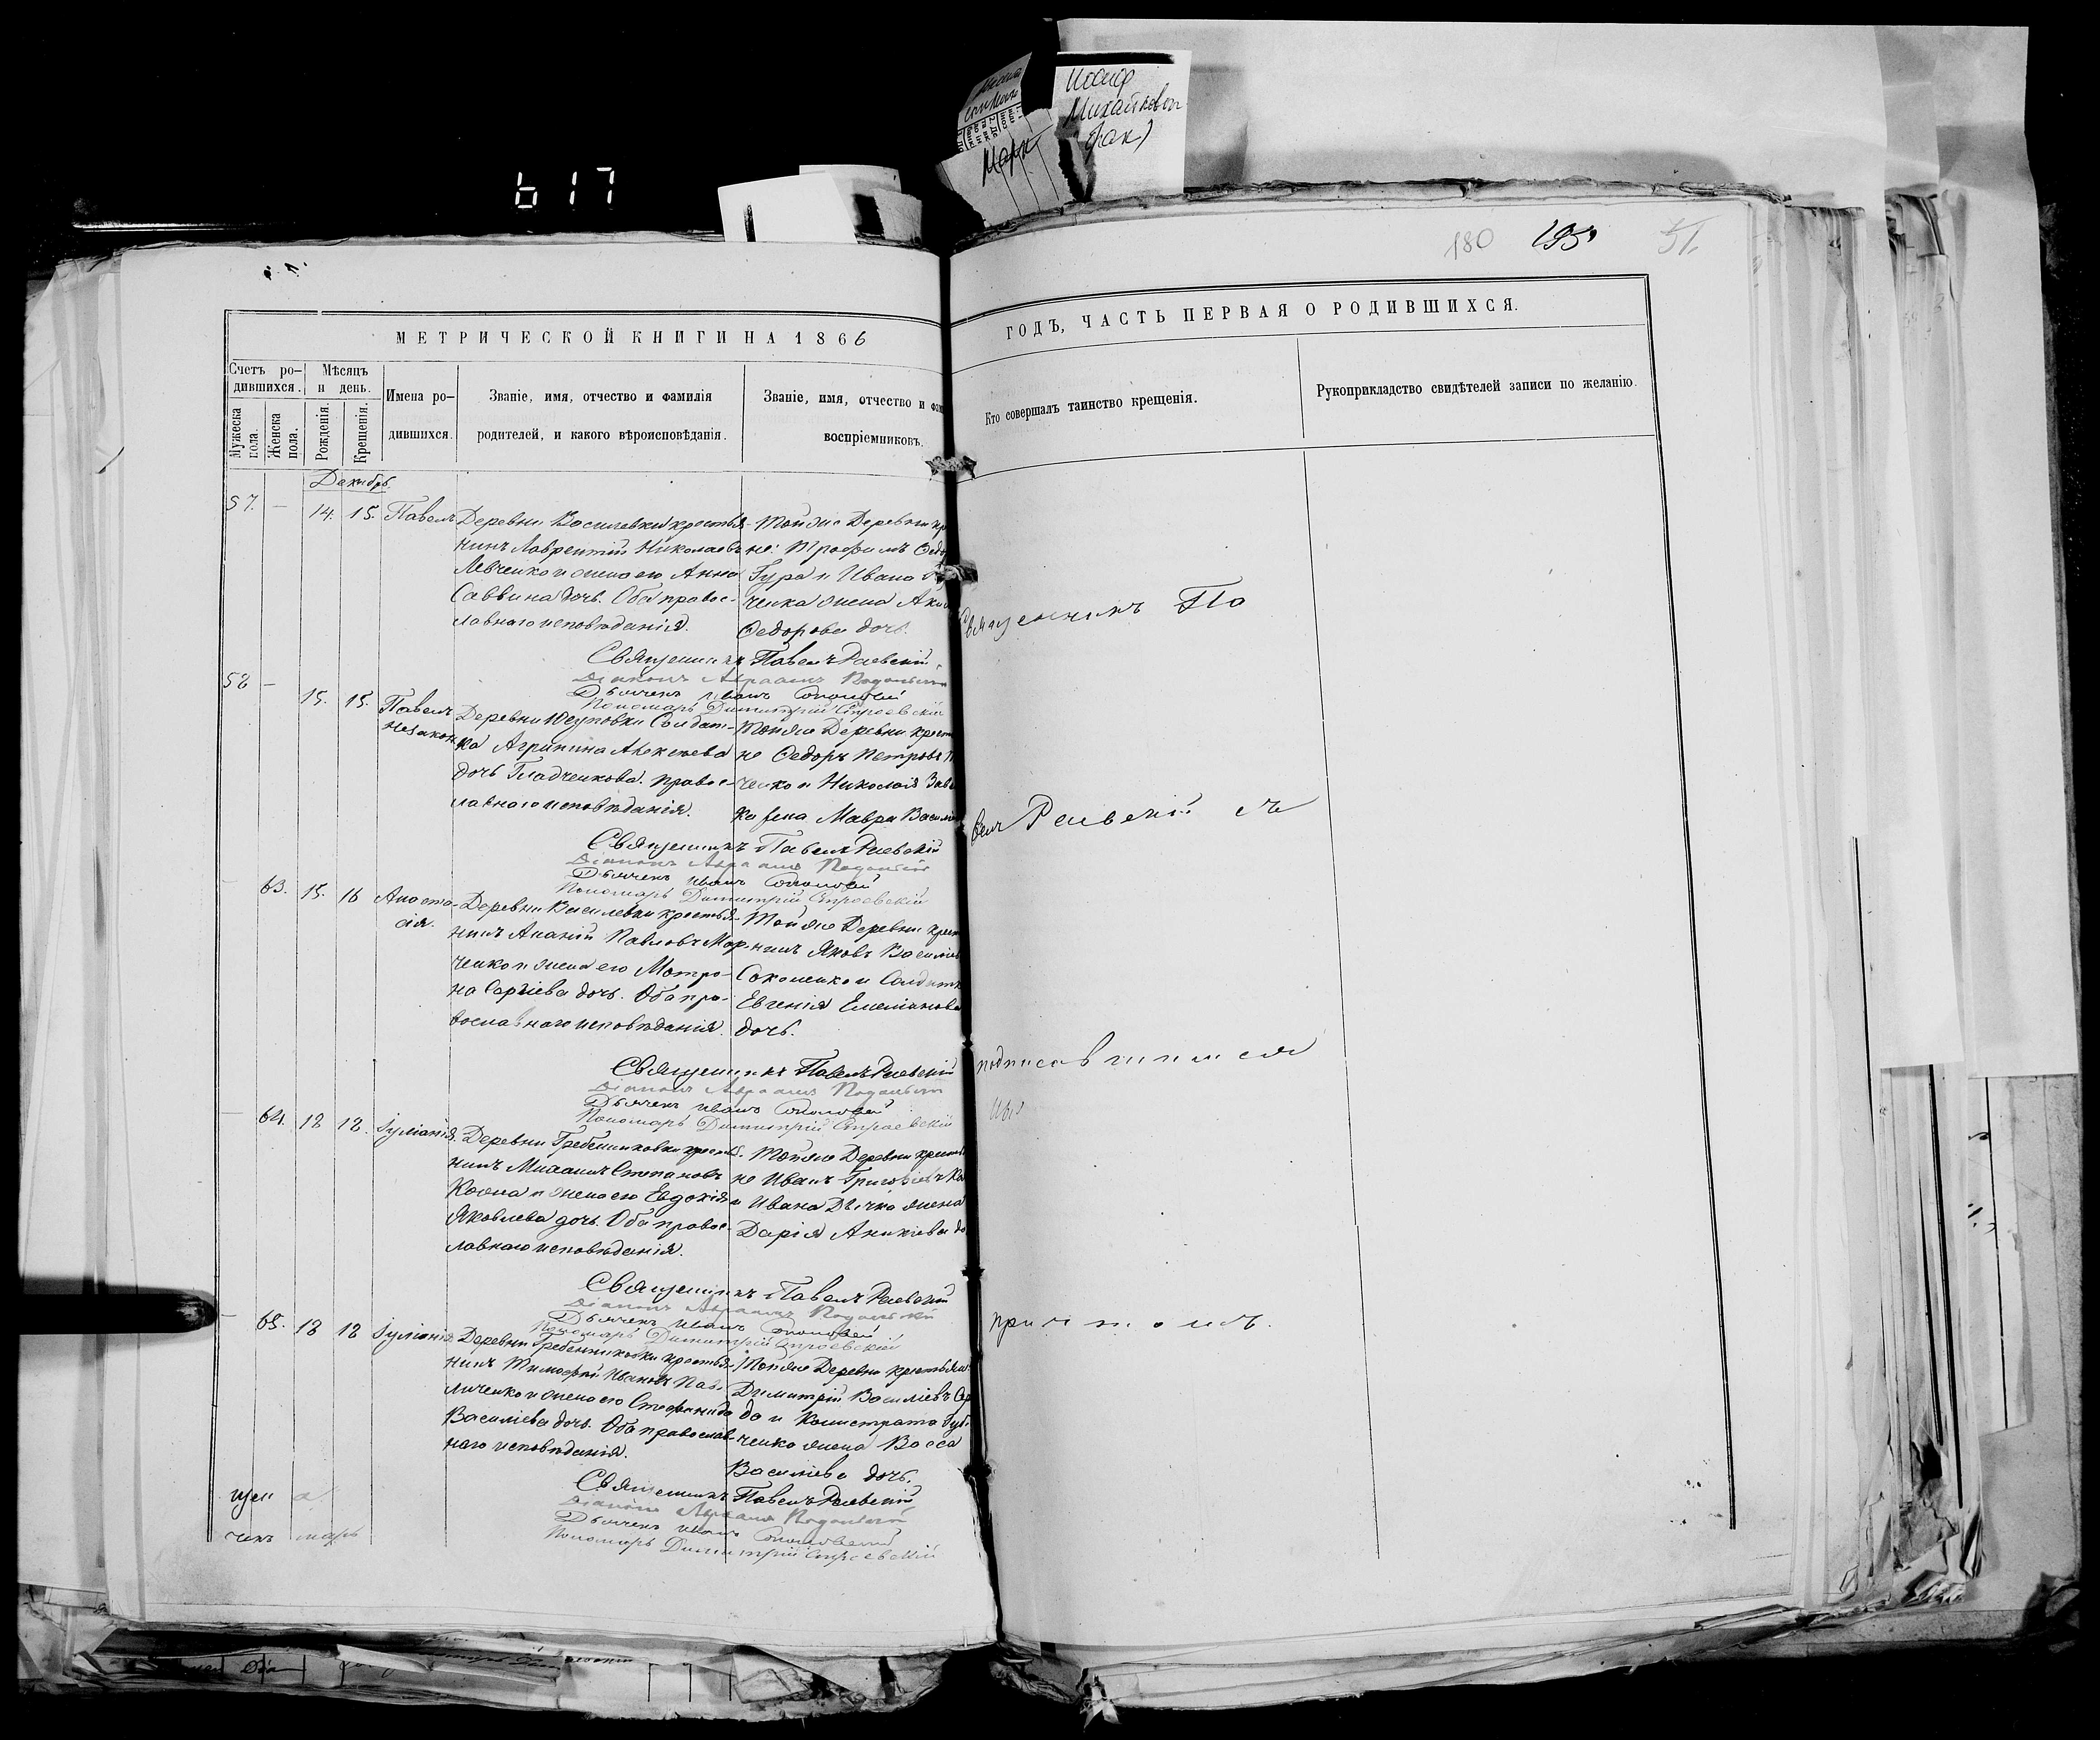 617
Иосиф
Михайлович
Марк
180 195 51
МЕТРИЧЕСКОЙ КНИГИ НА 1866
ГОДЪ, ЧАСТЬ ПЕРВАЯ О РОДИВШИХСЯ.
Счетъ ро-
дившихся.
Мужеска
пола.
Женска
пола.
Мѣсяцъ
и день.
Рожденія.
Крещенія.
Имена ро-
дившихся.
Званіе, имя, отчество и фамилія
родителей, и какого вѣроисповѣданія.
Званіе, имя, отчество и фам
воспріемниковъ.
Кто совершалъ таинство крещенія.
Рукоприкладство свидѣтелей записи по желанію.
Декабрь.
57. — 14. 15. Павелъ
Деревни Василевки крестья-
нинъ Лаврентій Николаевъ
Левченко и жена его Анна
Саввина дочь. Оба правос-
лавнаго исповѣданія.
Тойже Деревни кр
не: Трофимъ Ѳедо
Гура и Ивана
ченка жена Аки
Ѳедорова дочь.
Священникъ Павелъ Раевскій
Діаконъ Авраамъ Подольскій
Дьячекъ Иванъ
Пономарь Димитрій Строевскій
58 — 15. 15. Павелъ
незакон
Деревни Юсуповки Солдат-
ка Агрипина Алексѣева
дочь Гладченкова. правос-
лавнаго исповѣданія.
Тойже Деревни крест
не Ѳедоръ Петровъ
ченко и Николая Зав
ка жена Мавра Василі
Священникъ Павелъ Раевскій
Діаконъ Авраамъ Подольскій
Дьячекъ Иванъ
Пономарь Димитрій Строевскій
63. 15. 16 Анаста-
сія.
Деревни Василевки крестья-
нинъ Ананій Павловъ Мар-
ченко и жена его Матро-
на Сергіева дочь. Оба пра-
вославнаго исповѣданія.
Тойже Деревни крест
нинъ Яковъ Василіев
Соколенко и Солдатк
Евгенія Емеліанова
дочь.
Священникъ Павелъ Раевскій
Діаконъ Авраамъ Подольскій
Дьячекъ Иванъ
Пономарь Димитрій Строевскій
64. 18 18. Іуліанія.
Деревни Гребенниковки крестья-
нинъ Михаилъ Степановъ
и жена его Евдокія
Яковлева дочь. Оба правос-
лавнаго исповѣданія.
Тойже Деревни крестья
не Иванъ Григоріевъ
и Ивана Дычка жена
Дарія Аникіева до
Священникъ Павелъ Раевскій
Діаконъ Авраамъ Подольскій
Дьячекъ Иванъ
Пономарь Димитрій Строевскій
65. 18 18 Іуліанія
Деревни Гребенниковки крестья-
нинъ Тимофей Ивановъ Пав-
личенко и жена его Стефанида
Василіева дочь. Оба православ-
наго исповѣданія.
Тойже Деревни крестьяни
Димитрій Василіевъ
да и Калистрата Губ
ченко жена Васса
Василіева дочь.
Священникъ Павелъ Раевскій
Діаконъ Авраамъ Подольскій
Дьячекъ Иванъ
Пономарь Димитрій Строевскій
Священникъ Па
велъ Раевскій съ
подписавшимися
причтомъ.
щен
чекъ марь